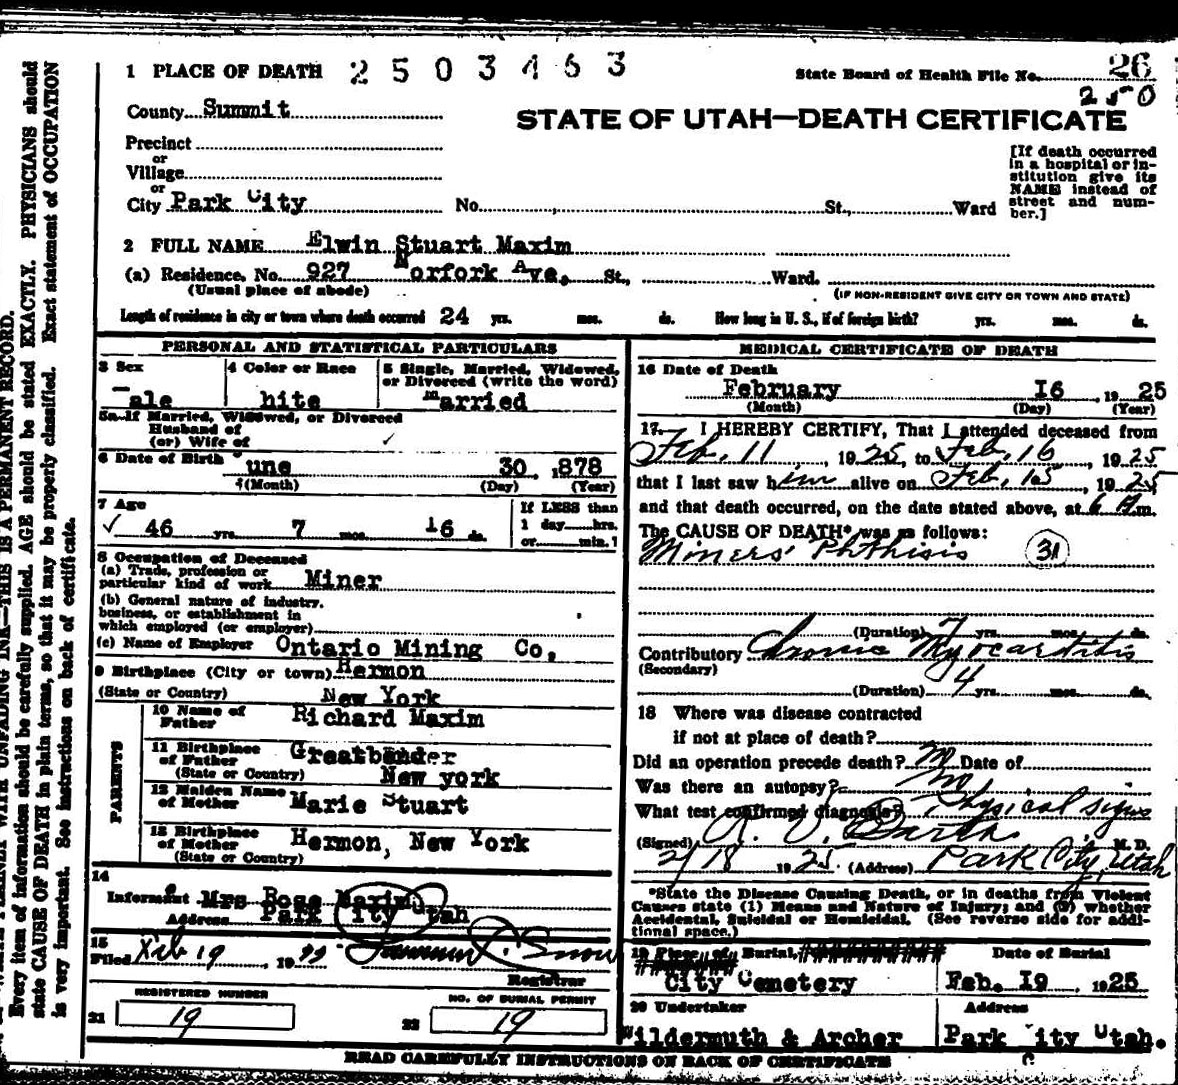 1 PLACE OF DEATH 2 5 0 3 4 6 3
State Board of Health File No. 26
250
County Summit
STATE OF UTAH—DEATH CERTIFICATE
Precinct
or
Village
or
City Park City No. St., Ward
[If death occurred
in a hospital or in-
stitution give its
NAME instead of
street and num-
ber.]
2 FULL NAME Elwin Stuart Maxim
(a) Residence, No. 927 Norfork Ave, St., Ward.
(Usual place of abode)
(IF NON-RESIDENT GIVE CITY OR TOWN AND STATE)
Length of residence in city or town where death occurred 24 yrs. mos. ds. How long in U. S., if of foreign birth? yrs. mos. ds.
PERSONAL AND STATISTICAL PARTICULARS
3 Sex
ale
4 Color or Race
hite
5 Single, Married, Widowed,
or Divorced (write the word)
married
5a—If Married, Widowed, or Divorced
Husband of
(or) Wife of
6 Date of Birth une 30, 1878
(Month) (Day) (Year)
7 Age
46 yrs. 7 mos. 16 ds.
If LESS than
1 day hrs.
or min.?
8 Occupation of Deceased
(a) Trade, profession or
particular kind of work Miner
(b) General nature of industry,
business, or establishment in
which employed (or employer)
(c) Name of Employer Ontario Mining Co,
9 Birthplace (City or town) Hermon
(State or Country) New York
PARENTS
10 Name of
Father Richard Maxim
11 Birthplace
of Father Greatbender
(State or Country) New york
12 Maiden Name
of Mother Marie Stuart
13 Birthplace
of Mother Hermon, New York
(State or Country)
14
Informant Mrs Rose Maxim
Address Park City Utah
15
Filed Feb 19, 19
Registrar
REGISTERED NUMBER
21 19
NO. OF BURIAL PERMIT
22 19
MEDICAL CERTIFICATE OF DEATH
16 Date of Death
February 16, 1925
(Month) (Day) (Year)
17. I HEREBY CERTIFY, That I attended deceased from
Feb, 11, 1925, to Feb, 16, 1925
that I last saw him alive on Feb, 15, 1925,
and that death occurred, on the date stated above, at 6 A m.
The CAUSE OF DEATH* was as follows:
Miners' Phthisis 31
(Duration) 7 yrs. mos. ds.
Contributory Chronic Myocarditis
(Secondary)
(Duration) 4 yrs. mos. ds.
18 Where was disease contracted
if not at place of death?
Did an operation precede death? no Date of
Was there an autopsy? no
What test confirmed diagnosis? Physical signs
(Signed) M. D.
2/18 1925. (Address) Park City, Utah
*State the Disease Causing Death, or in deaths from Violent
Causes state (1) Means and Nature of Injury; and (2) whether
Accidental, Suicidal or Homicidal. (See reverse side for addi-
tional space.)
19 Place of Burial,
City Cemetery
Date of Burial
Feb. 19, 1925
20 Undertaker
Wildermuth & Archer
Address
Park City Utah.
READ CAREFULLY INSTRUCTIONS ON BACK OF CERTIFICATE
WITH UNFADING INK—THIS IS A PERMANENT RECORD.
Every item of information should be carefully supplied. AGE should be stated EXACTLY. PHYSICIANS should
state CAUSE OF DEATH in plain terms, so that it may be properly classified. Exact statement of OCCUPATION
is very important. See instructions on back of certificate.